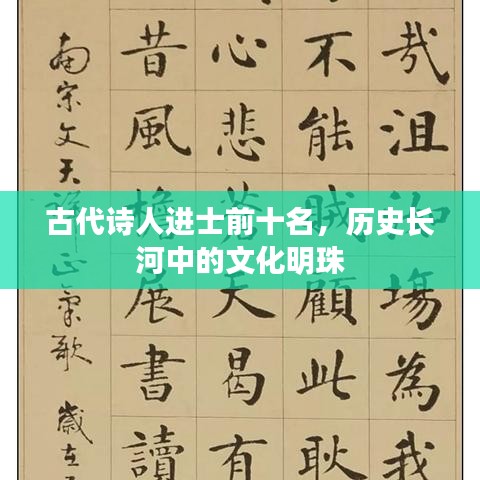 古代诗人进士前十名，历史长
河中的文化明珠
哉沮場為我
不能賊顧此耿
心悲蒼天曷有
昔風檐展書讀
南宋文天祥正氣歌 歲在